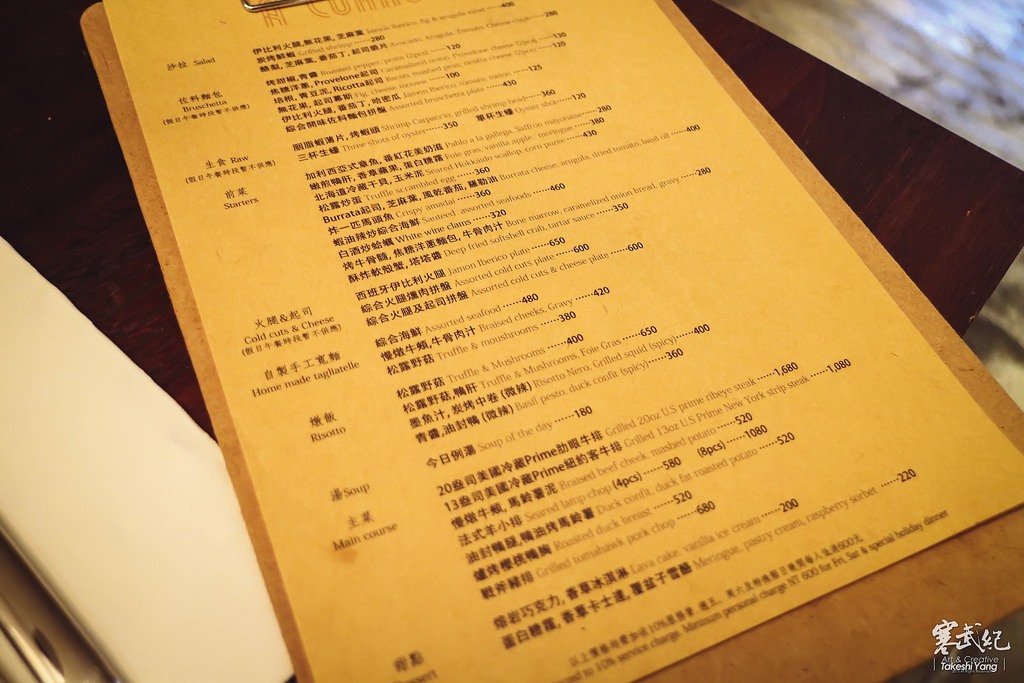 沙拉 Salad
伊比利火腿,無花果,芝麻葉 Jamon Iberico, fig & arugula salad ······400
炭烤鮮蝦 Grilled shrimp ······280
酪梨, 芝麻葉, 番茄丁, 起司脆片 Avocado, Arugula, Tomato, Cheese chips ······280
佐料麵包
Bruschetta
(假日午餐時段暫不供應)
烤甜椒,青醬 Roasted pepper, pesto (2pcs) ······120
焦糖洋蔥, Provelone起司 Caramelized onion, Provelone cheese (2pcs) ······130
培根, 青豆泥, Ricotta起司 Bacon, mashed peas, ricotta cheese (2pcs) ······120
無花果, 起司慕斯 Fig, cheese mousse ······100
伊比利火腿, 番茄丁, 哈密瓜 Jamon Iberico, tomato, melon ······125
綜合開味佐料麵包拼盤 Assorted bruschetta plate ······430
生食 Raw
(假日午餐時段暫不供應)
胭脂蝦薄片, 烤蝦頭 Shrimp Carpaccio, grilled shrimp head ······360
三杯生蠔 Three shots of oyster ······350 單杯生蠔 Oyster shot ······120
前菜
Starters
加利西亞式章魚, 番紅花美奶滋 Pablo a la gallega, Saffron mayonnaise ······280
嫩煎鴨肝, 香草蘋果, 蛋白糖霜 Foie gras, vanilla apple, meringue ······380
北海道冷藏干貝, 玉米泥 Seared Hokkaido scallop, corn puree ······430
松露炒蛋 Truffle scrambled egg ······360
Burrata起司, 芝麻葉, 風乾番茄, 羅勒油 Burrata cheese, arugula, dried tomato, basil oil ······400
炸一匹馬頭魚 Crispy amadai ······360
蝦油辣炒綜合海鮮 Sauteed assorted seafoods ······460
白酒炒蛤蠣 White wine clams ······320
烤牛骨髓, 焦糖洋蔥麵包, 牛骨肉汁 Bone marrow, caramalized onion bread, gravy ······280
酥炸軟殼蟹, 塔塔醬 Deep fried softshell crab, tartar sauce ······350
火腿&起司
Cold cuts & Cheese
(假日午餐時段暫不供應)
西班牙伊比利火腿 Jamon Iberico plate ······650
綜合火腿燻肉拼盤 Assorted cold cuts plate ······600
綜合火腿及起司拼盤 Assorted cold cuts & cheese plate ······600
自製手工寬麵
Home made tagliatelle
綜合海鮮 Assorted seafood ······480
慢燉牛頰,牛骨肉汁 Braised cheeks, Gravy ······420
松露野菇 Truffle & moushrooms ······380
燉飯
Risotto
松露野菇 Truffle & Mushrooms ······400
松露野菇,鴨肝 Truffle & Mushrooms, Foie Gras ······650
墨魚汁, 炭烤中卷 (微辣) Risotto Nero, Grilled squid (spicy) ······400
青醬,油封鴨 (微辣) Basil pesto, duck confit (spicy) ······360
湯Soup
今日例湯 Soup of the day ······180
主菜
Main course
20盎司美國冷藏Prime肋眼牛排 Grilled 20oz U.S prime ribeye steak ······1,680
13盎司美國冷藏Prime紐約客牛排 Grilled 13oz U.S Prime New York strip steak ······1,080
慢燉牛頰, 馬鈴薯泥 Braised beef cheek, mashed potato ······520
法式羊小排 Seared lamp chop (4pcs) ······580 (8pcs) ······1080
油封鴨腿,鴨油烤馬鈴薯 Duck confit, duck fat roasted potato ······520
爐烤櫻桃鴨胸 Roasted duck breast ······520
戰斧豬排 Grilled tomahawk pork chop ······680
甜點
熔岩巧克力, 香草冰淇淋 Lava cake, vanilla ice cream ······200
蛋白糖霜, 香草卡士達, 覆盆子雪酪 Meringue, pastry cream, raspberry sorbet ······220
to 10% service charge. Minimum personal charge NT 600 for Fri, Sat & special holiday dinner
寒武紀
Art & Creative
Takeshi Yang